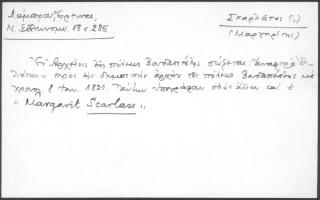 Λάμπρου, Έρευναι,
Ν. Ελληνομν. 18 σ. 285
Σκαρλάτος (;)
(Μαργαρίτης)
Εν Αρχείοις της πόλεως Βουδαπέστης σώζεται "Αναφορά Ελ-
λήνων προς την δημοτικήν αρχήν της πόλεως Βουδαπέστης υπό
χρον. 8 Ιαν. 1821. Ταύτην υπογράφει πλην άλλων και ο
"Margarit Scarlass",